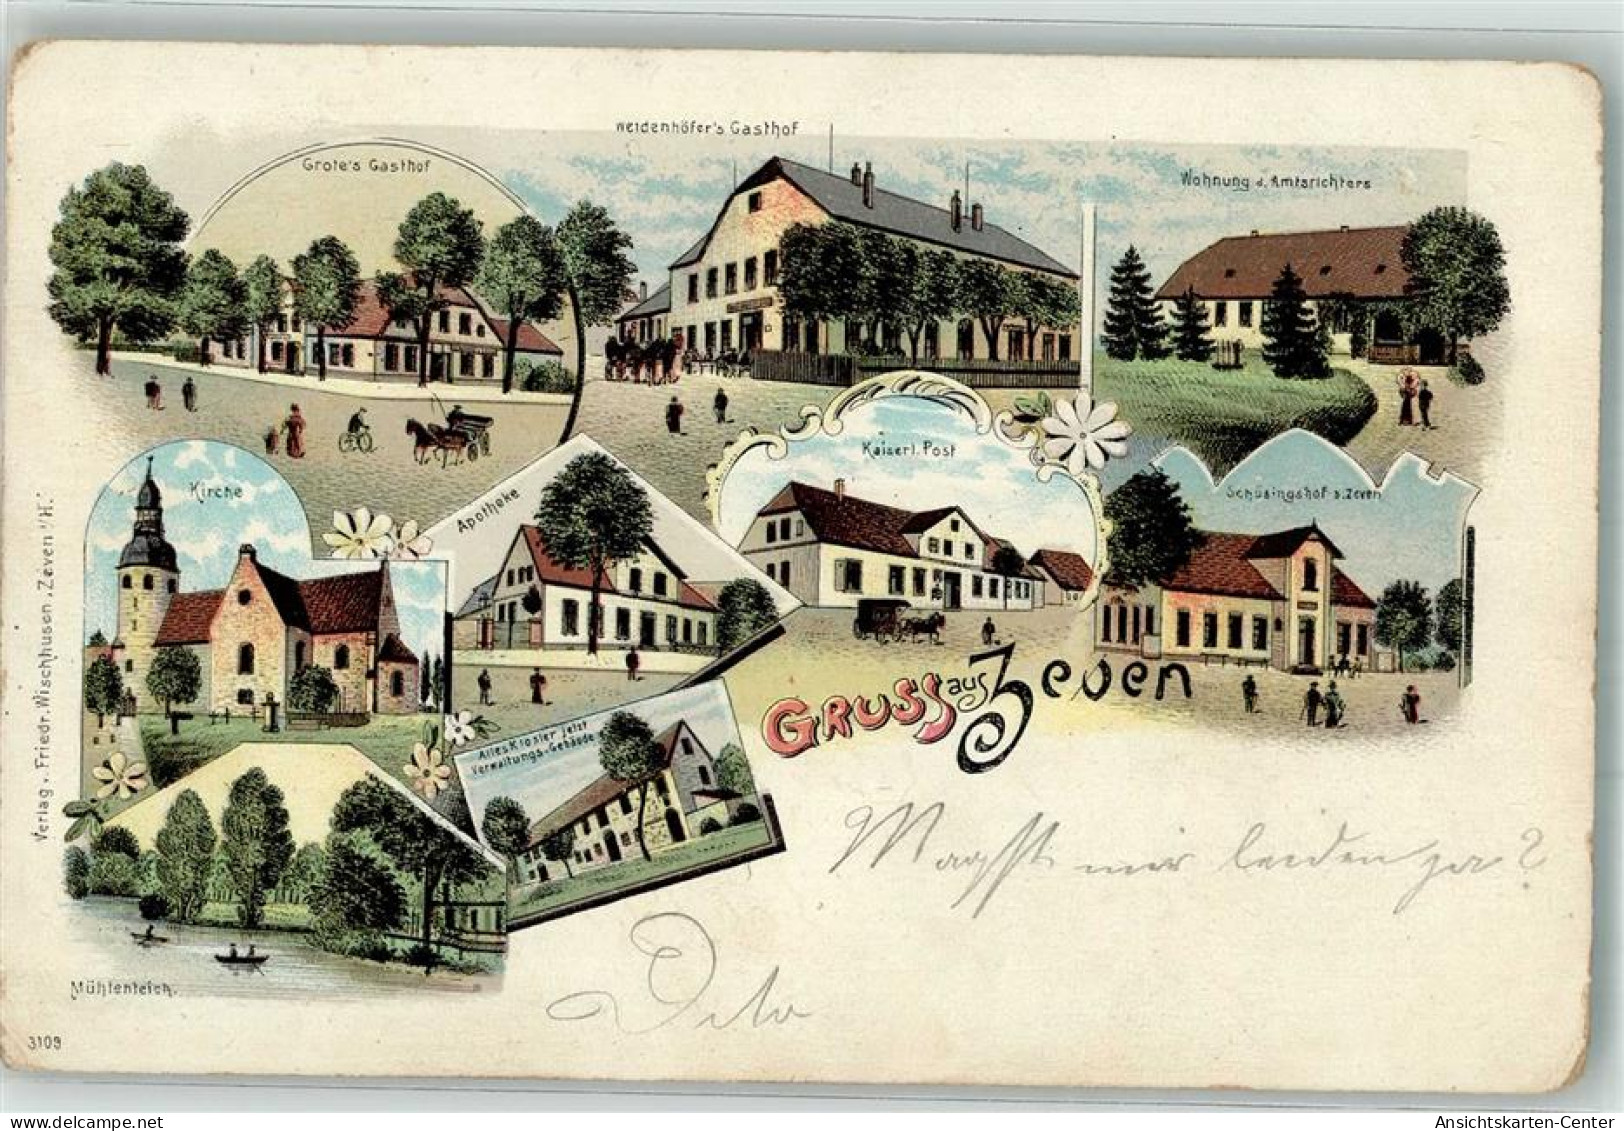 Weidenhöfer's Gasthof
Grote's Gasthof
Wohnung d. Amtsrichters
Kaiserl. Post
Kirche
Apotheke
Schüsingshof b. Zeven
GRUSS aus Zeven
Altes Kloster jetzt
Verwaltungs-Gebäude
Magst mir leiden ja?
Mühlenteich.
Verlag v. Friedr. Wischhusen, Zeven i/H.
3109
Ansichtskarten-Center